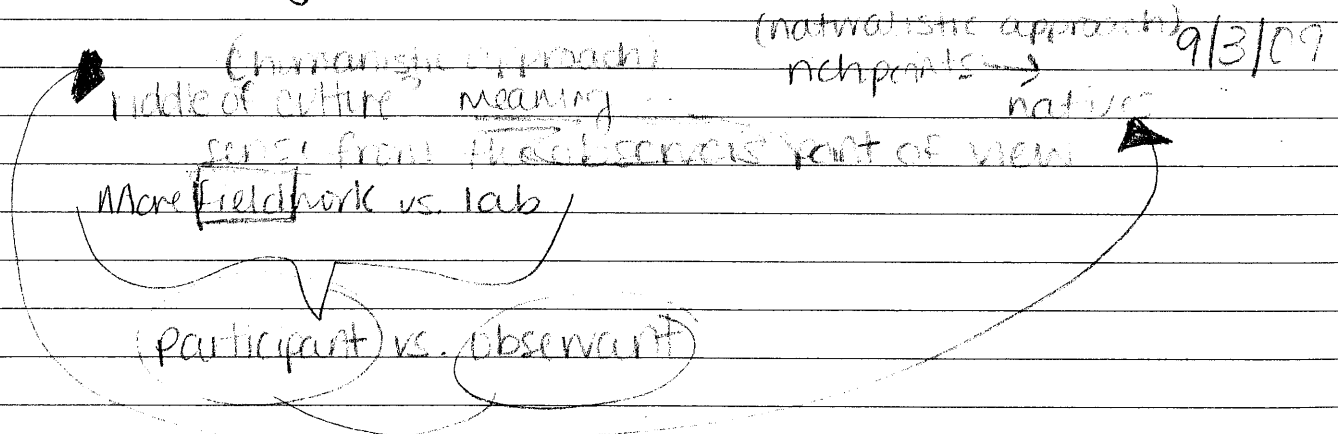 (naturalistic approach) 9/3/09
(humanistic approach) richpoints →
riddle of culture meaning natives
sense from the observers point of view
More fieldwork vs. lab
(participant) vs. observant